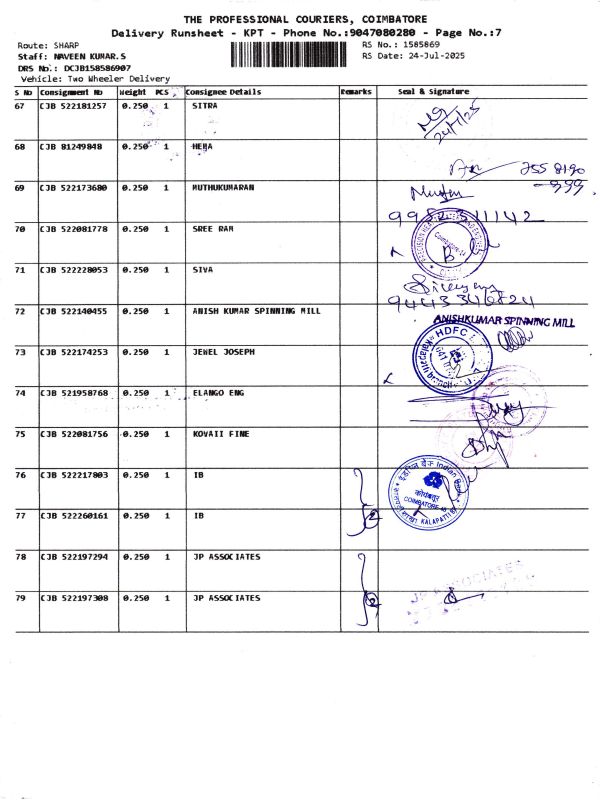 THE PROFESSIONAL COURIERS, COIMBATORE
Delivery Runsheet - KPT - Phone No.:9047080280 - Page No.:7
Route: SHARP
RS No.: 1585869
Staff: NAVEEN KUMAR.S
RS Date: 24-Jul-2025
DRS No.: DCJB158586907
Vehicle: Two Wheeler Delivery
S No Consignment No Weight PCS Consignee Details Remarks Seal & Signature
67 CJB 522181257 0.250 1 SITRA
24/7/25
68 CJB 81249848 0.250 1 HEMA
755 8190
999
69 CJB 522173680 0.250 1 MUTHUKUMARAN
70 CJB 522081778 0.250 1 SREE RAM
71 CJB 522228053 0.250 1 SIVA
72 CJB 522140455 0.250 1 ANISH KUMAR SPINNING MILL
ANISHKUMAR SPINNING MILL
73 CJB 522174253 0.250 1 JEWEL JOSEPH
HDFC
74 CJB 521958768 0.250 1 ELANGO ENG
75 CJB 522081756 0.250 1 KOVAII FINE
76 CJB 522217803 0.250 1 IB
इंडियन बैंक Indian Bank
कोयंबत्तूर
COIMBATORE
KALAPATTI
77 CJB 522260161 0.250 1 IB
2
78 CJB 522197294 0.250 1 JP ASSOCIATES
JP ASSOCIATES
79 CJB 522197308 0.250 1 JP ASSOCIATES
2